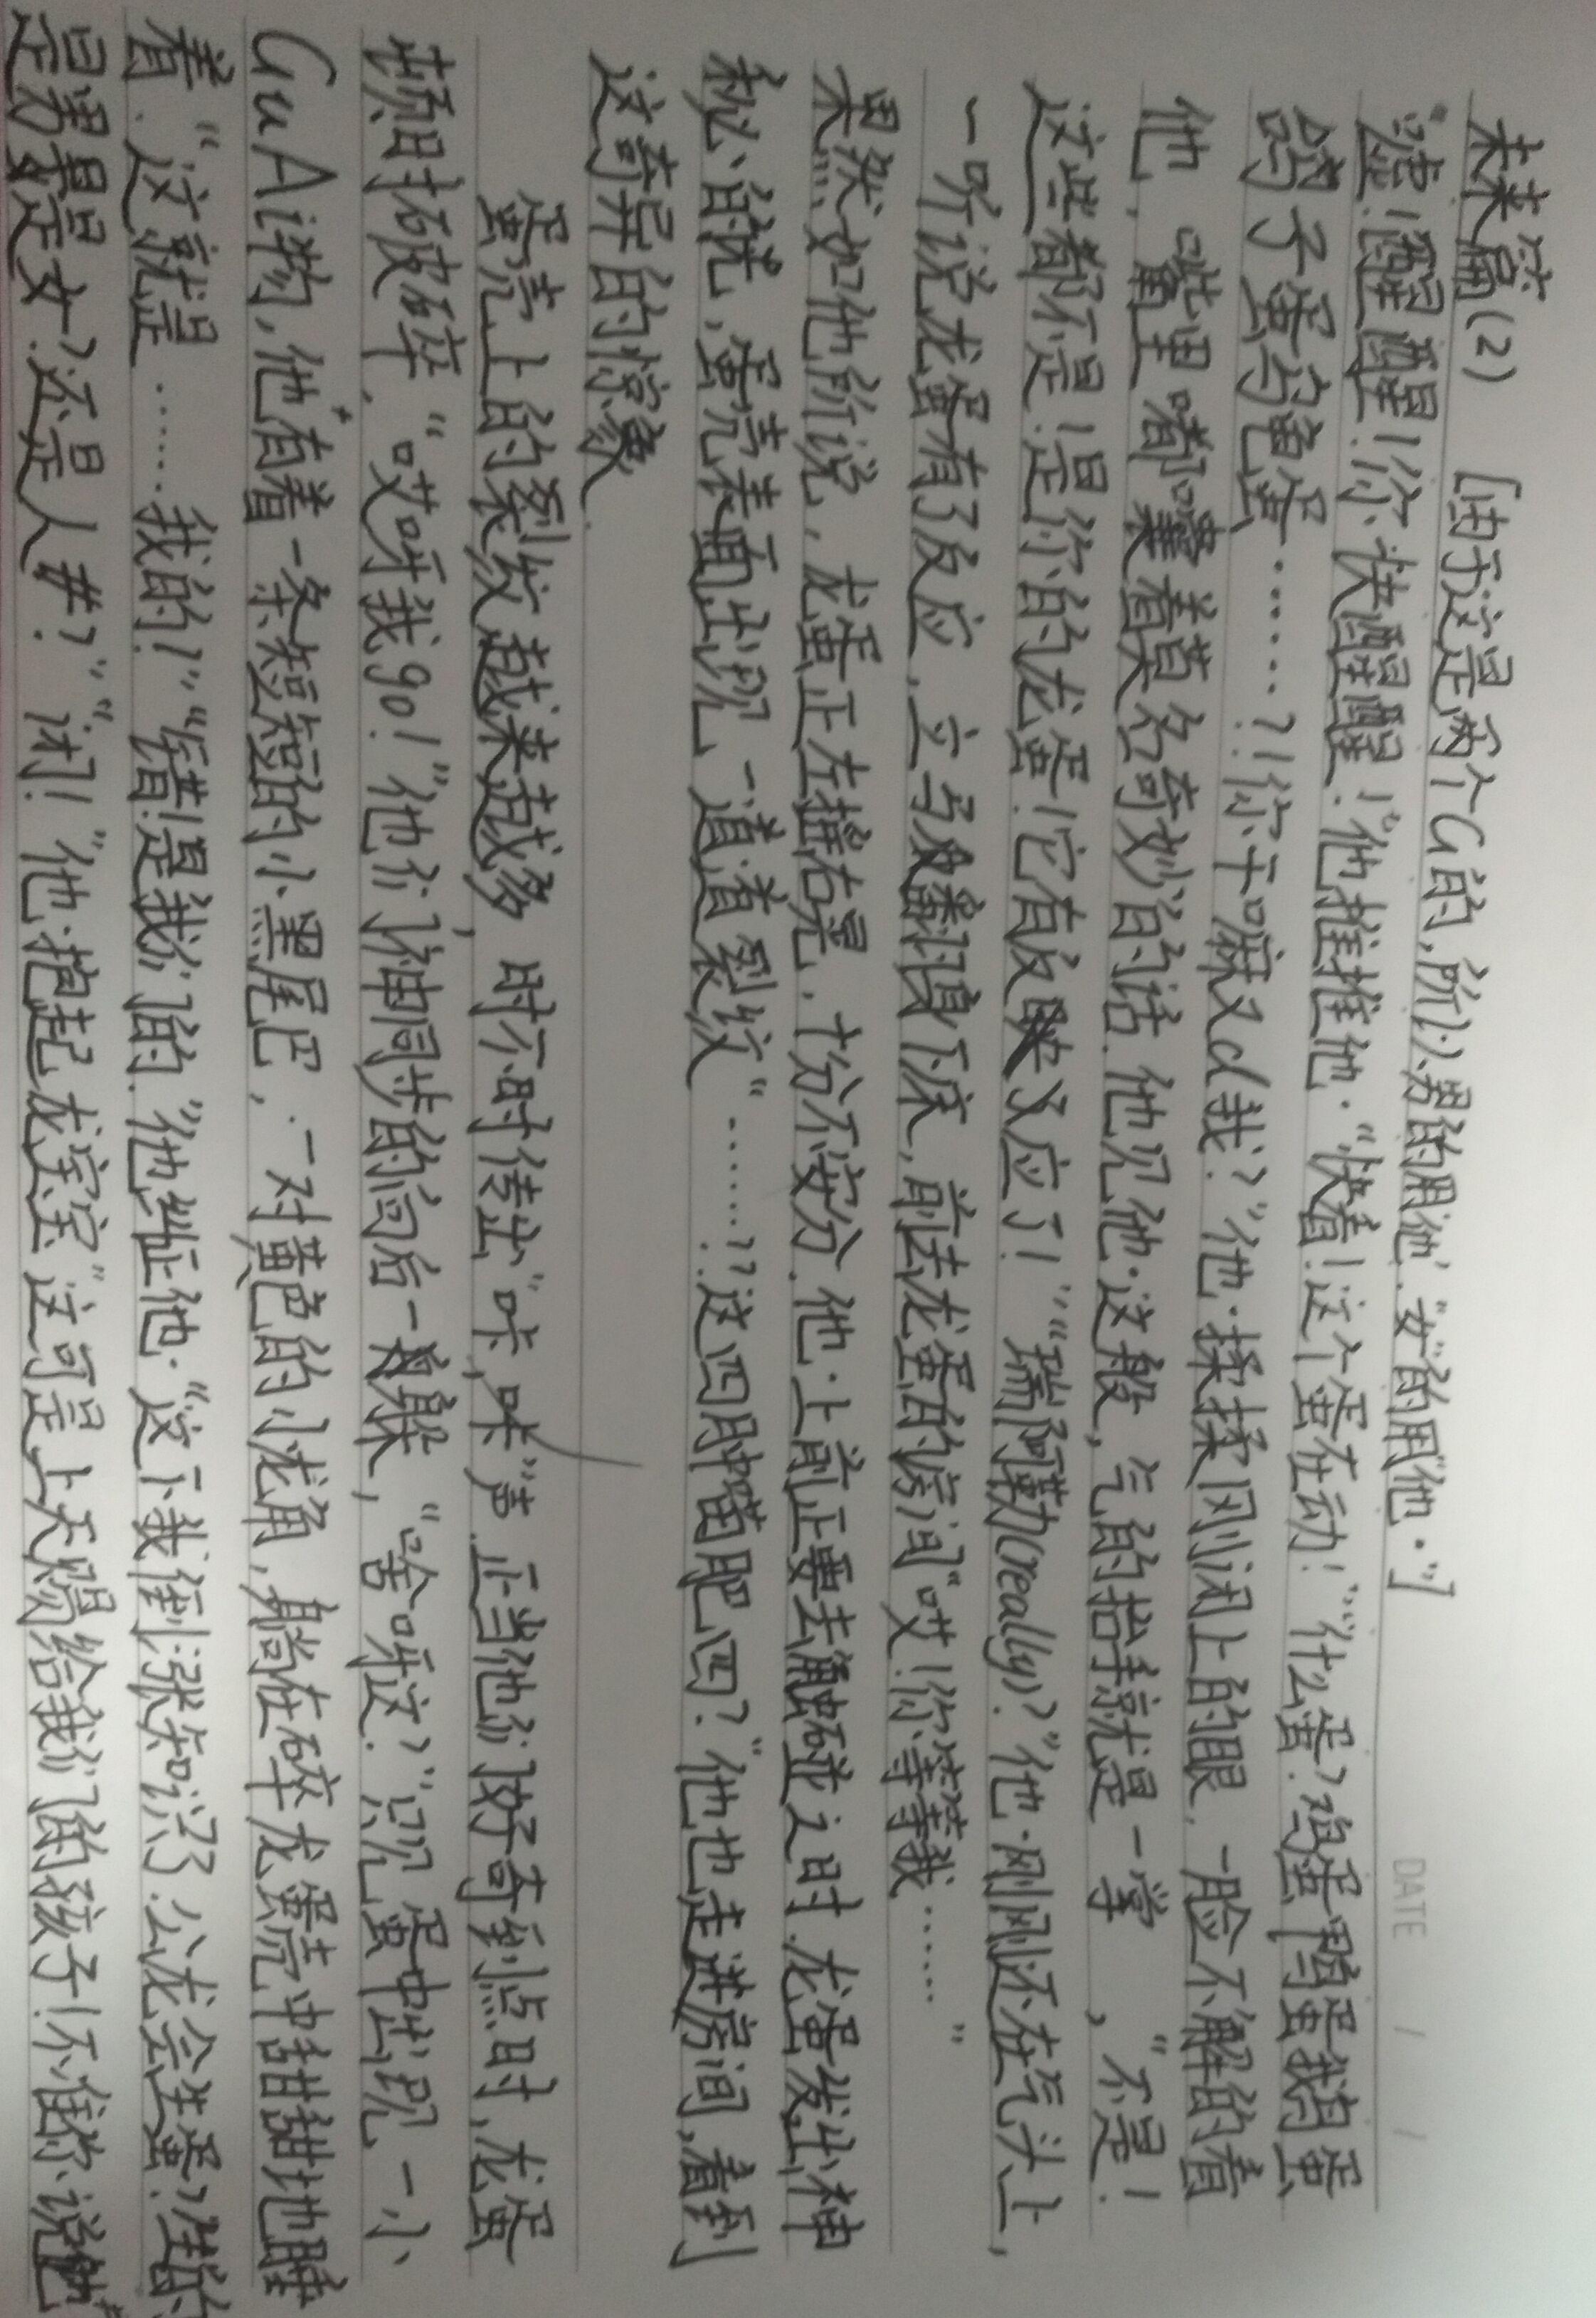 未来篇(2) [由于这是两个G的,所以男的用'他'.“女”的用“他·”]
DATE / /
“嘘!醒醒!你快醒醒!”他推推他·“快看!这个蛋在动!”“什么蛋?鸡蛋鸭蛋鹅蛋
鸽子蛋乌龟蛋……?!你干嘛又cl我?”他·揉揉刚闭上的眼.一脸不解的看
他,嘴里嘟囔着莫名奇妙的话.他见他·这般,气的抬手就是一掌,“不是!
这些都不是!是你的龙蛋!它有反应了!”“瑞阿勒(really)?”他·刚刚还在气头上,
一听说龙蛋有了反应,立马翻身下床,前去龙蛋的房间“哎!你等等我……”
果然如他所说,龙蛋正左摇右晃.十分不安分.他·上前正要去触碰之时.龙蛋发出神
秘的光,蛋壳表面出现一道道裂纹“……??这四肿蕾肥四?”他也走进房间,看到
这奇异的惊象.
蛋壳上的裂纹越来越多,时不时传出“咔,咔”声.正当他们好奇到点时,龙蛋
顿时破碎.“哎呀我go!”他们神同步的向后一躲,“啥呀这?”只见蛋中出现一小
GuAi物,他有着一条短短的小黑尾巴,一对黄色的小龙角,躺在碎龙蛋壳中甜甜地睡
着.“这就是……我的!”“错!是我们的.”他纠正他·“这下我倒涨知识了.公龙会生蛋?生的
是男是女?还是人妖?”“闭!”他·抱起龙宝宝“这可是上天赐给我们的孩子!不准你说他